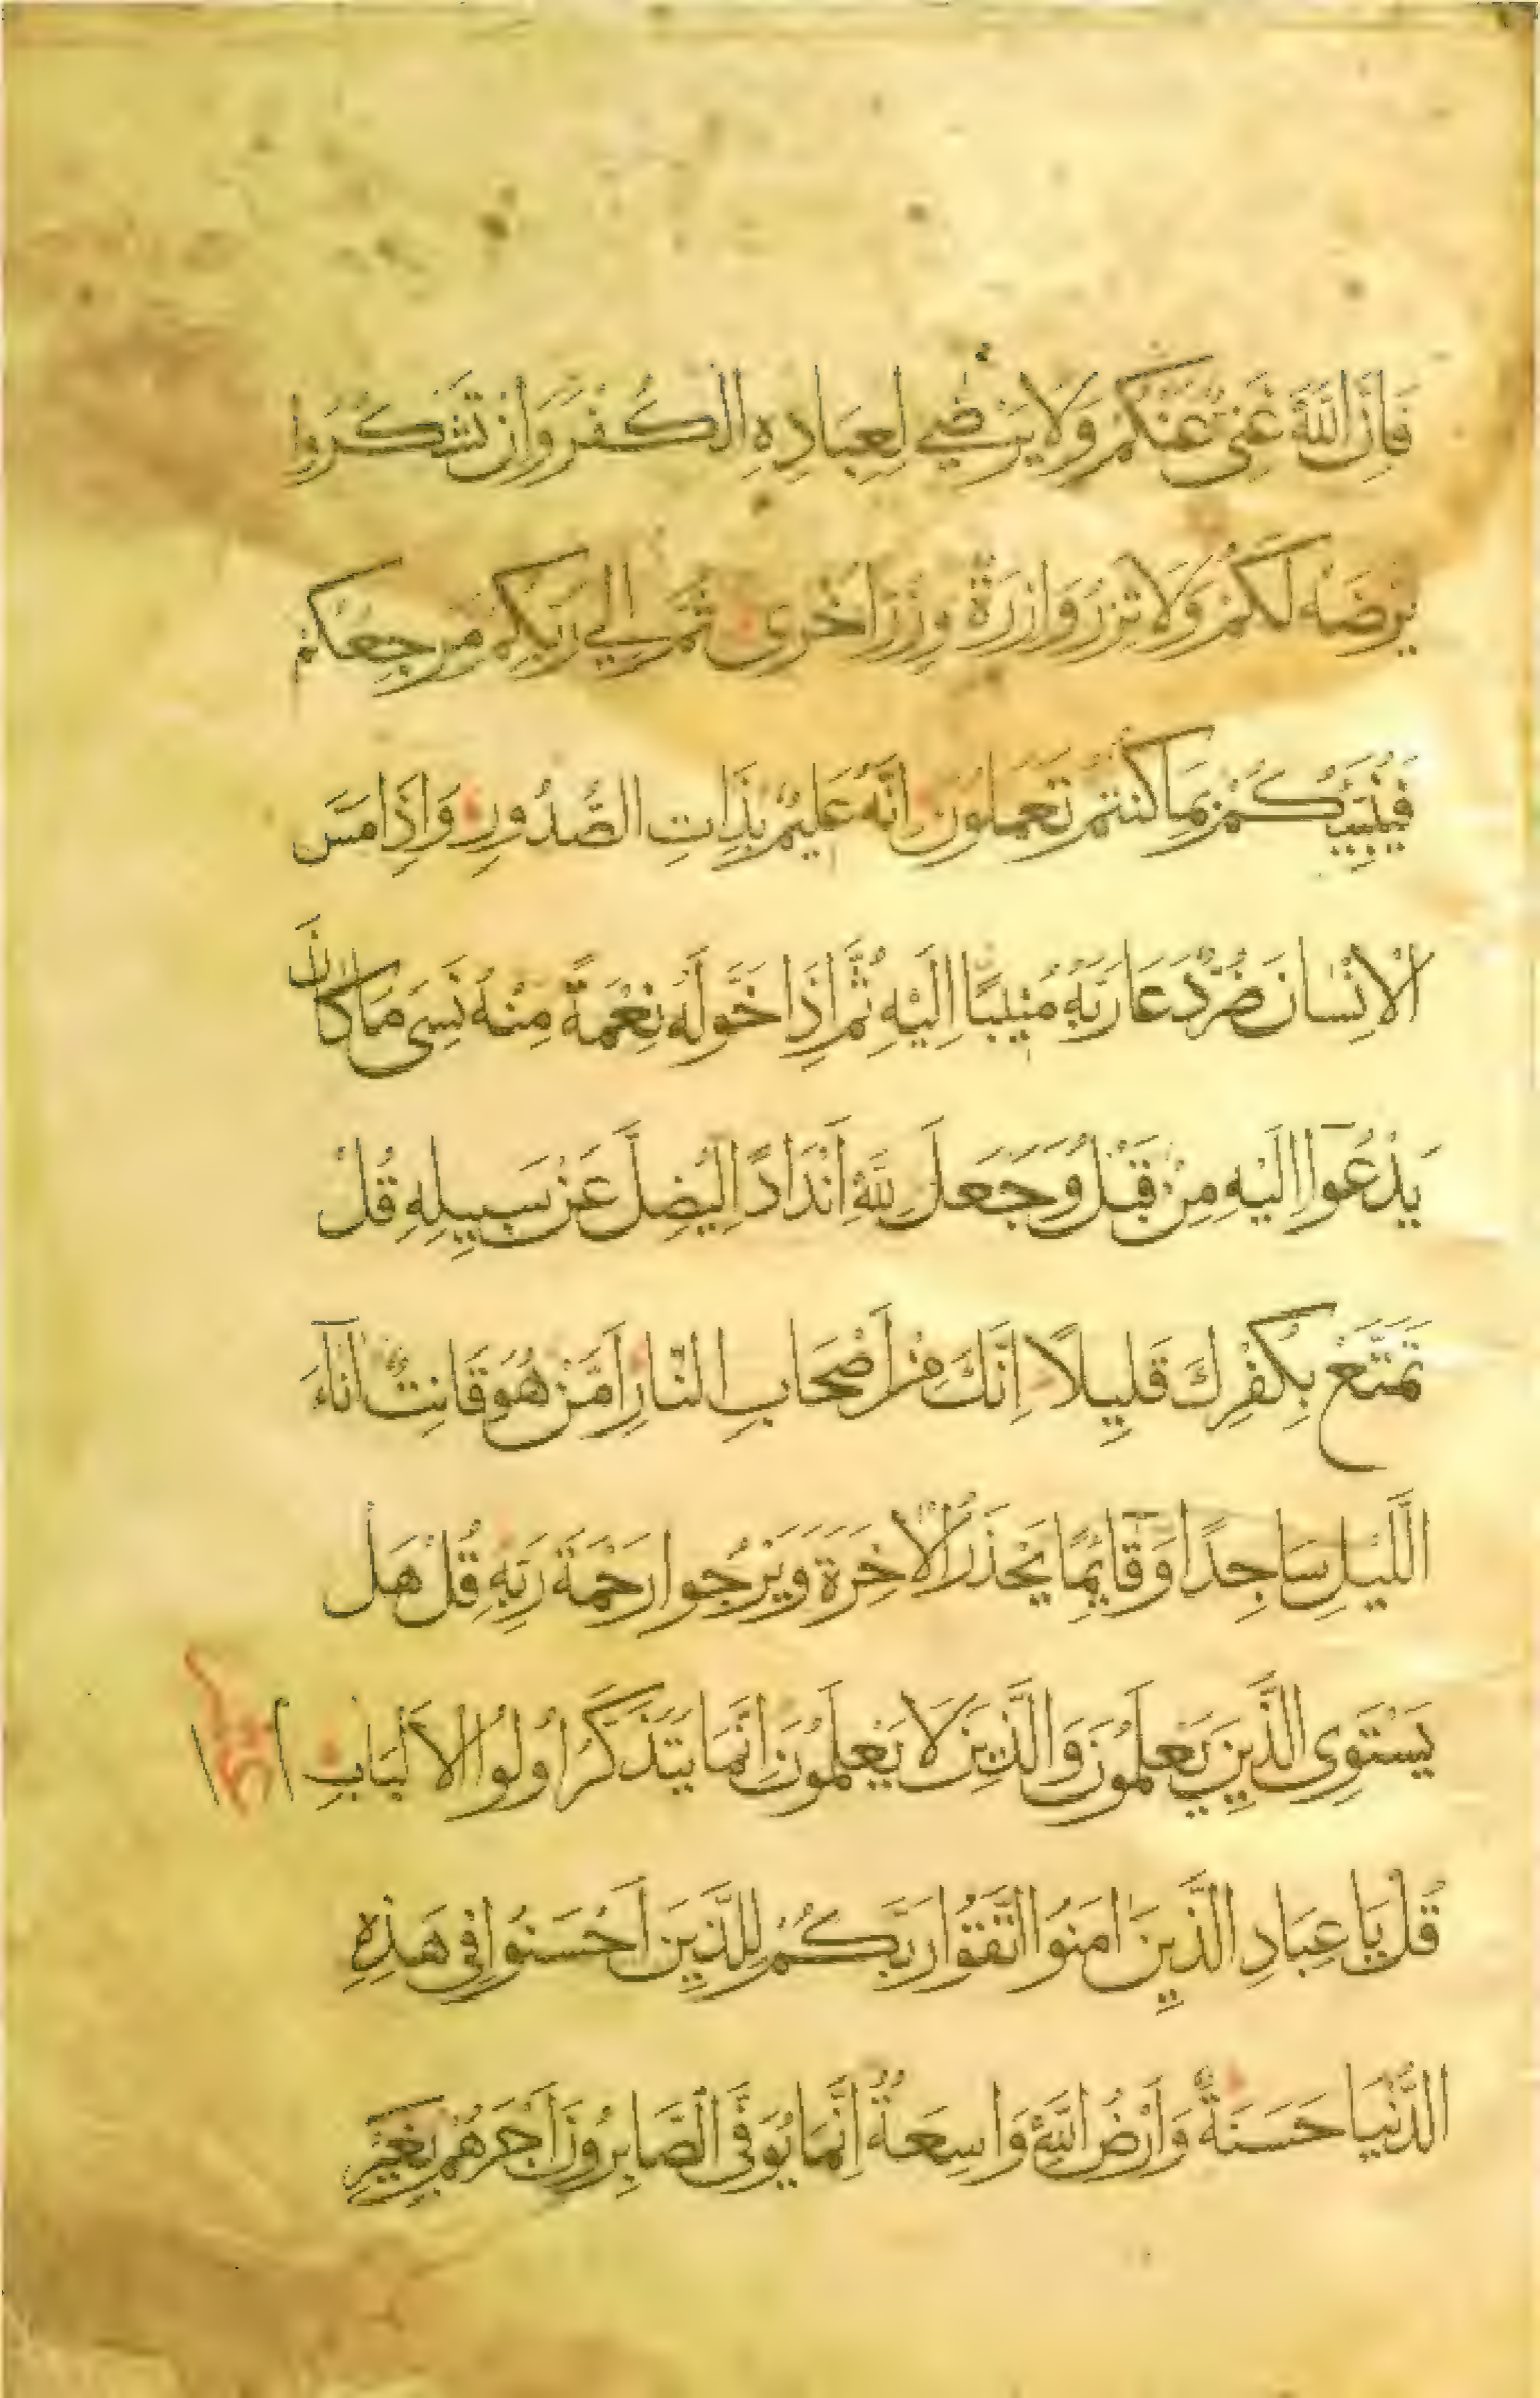 فَاِنَّ اللّٰهَ غَنِيٌّ عَنْكُمْ وَلَا يَرْضٰي لِعِبَادِهِ الْكُفْرَ وَاِنْ تَشْكُرُوا
يَرْضَهُ لَكُمْ وَلَا تَزِرُ وَازِرَةٌ وِزْرَ اُخْرٰى ثُمَّ اِلٰي رَبِّكُمْ مَرْجِعُكُمْ
فَيُنَبِّئُكُمْ بِمَا كُنْتُمْ تَعْمَلُونَ اِنَّهُ عَلِيمٌ بِذَاتِ الصُّدُورِ وَاِذَا مَسَّ
الْاِنْسَانَ ضُرٌّ دَعَا رَبَّهُ مُنِيبًا اِلَيْهِ ثُمَّ اِذَا خَوَّلَهُ نِعْمَةً مِنْهُ نَسِيَ مَا كَانَ
يَدْعُوا اِلَيْهِ مِنْ قَبْلُ وَجَعَلَ لِلّٰهِ اَنْدَادًا لِيُضِلَّ عَنْ سَبِيلِهِ قُلْ
تَمَتَّعْ بِكُفْرِكَ قَلِيلًا اِنَّكَ مِنْ اَصْحَابِ النَّارِ اَمَّنْ هُوَ قَانِتٌ اٰنَآءَ
اللَّيْلِ سَاجِدًا وَقَآئِمًا يَحْذَرُ الْاٰخِرَةَ وَيَرْجُوا رَحْمَةَ رَبِّهِ قُلْ هَلْ
يَسْتَوِى الَّذِينَ يَعْلَمُونَ وَالَّذِينَ لَا يَعْلَمُونَ اِنَّمَا يَتَذَكَّرُ اُولُوا الْاَلْبَابِ
قُلْ يَا عِبَادِ الَّذِينَ اٰمَنُوا اتَّقُوا رَبَّكُمْ لِلَّذِينَ اَحْسَنُوا فِى هٰذِهِ
الدُّنْيَا حَسَنَةٌ وَاَرْضُ اللّٰهِ وَاسِعَةٌ اِنَّمَا يُوَفَّى الصَّابِرُونَ اَجْرَهُمْ بِغَيْرِ